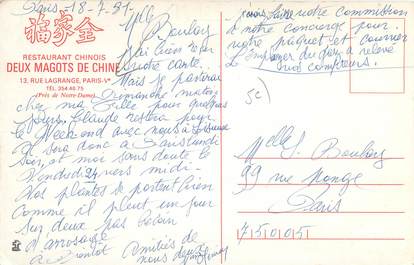 Paris, 18-7-81
全家福
RESTAURANT CHINOIS
DEUX MAGOTS DE CHINE
13, RUE LAGRANGE, PARIS-Ve
TÉL. 354 46 75
(Près de Notre-Dame)
Melle Boulory
J'ai bien reçu
votre carte.
Mais je partirai
Dimanche matin
chez ma fille pour quelques
jours. Claude restera pour
le Weekend avec nous à
Il sera donc à Paris lundi
soir, et moi sans doute le
Vendredi 24 vers midi.
Vos plantes se portent bien
comme il pleut un jour
sur deux pas besoin
d'arrosage
A bientôt Amitiés de
nous deux
J'irai faire votre commission
à notre concierge pour
votre paquet et courrier
Le employé du gaz a relevé
vos compteurs.
5c)
Melle S. Boulory
99 rue Monge
Paris
75005